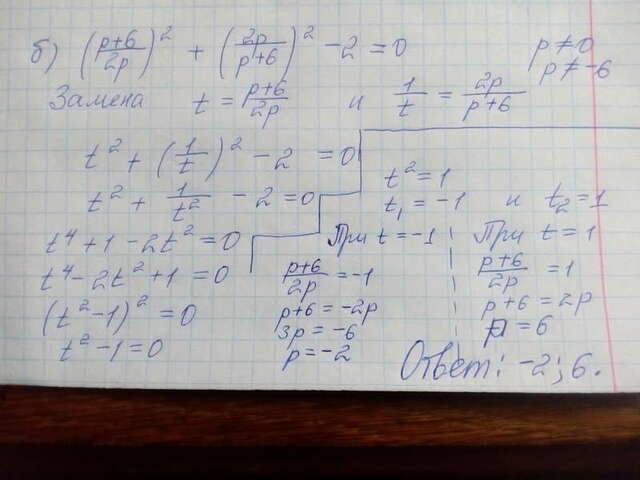 б) ((p+6)/2p)² + (2p/(p+6))² - 2 = 0
p ≠ 0
p ≠ -6
Замена t = (p+6)/2p и 1/t = 2p/(p+6)
t² + (1/t)² - 2 = 0
t² + 1/t² - 2 = 0
t⁴ + 1 - 2t² = 0
t⁴ - 2t² + 1 = 0
(t² - 1)² = 0
t² - 1 = 0
t² = 1
t₁ = -1 и t₂ = 1
При t = -1
(p+6)/2p = -1
p+6 = -2p
3p = -6
p = -2
При t = 1
(p+6)/2p = 1
p+6 = 2p
p = 6
Ответ: -2; 6.